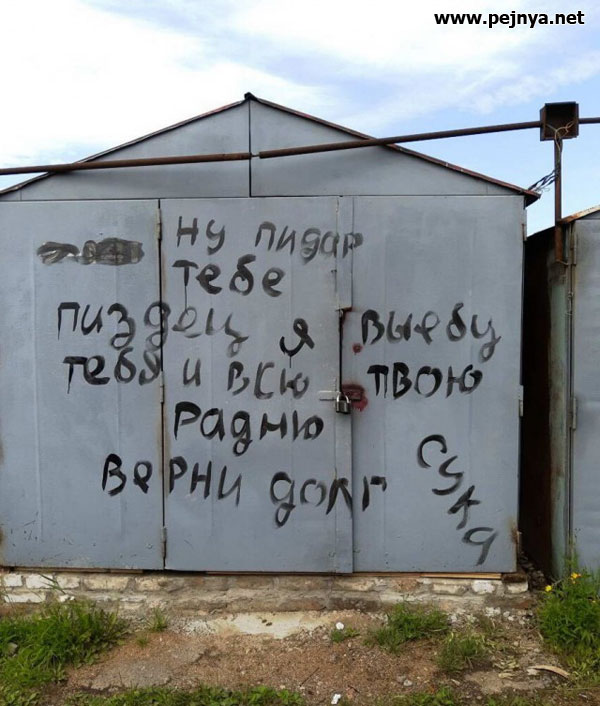 www.pejnya.net
ну пидар
тебе
пиздец я выебу
тебя и всю твою
радню
верни долг
сука